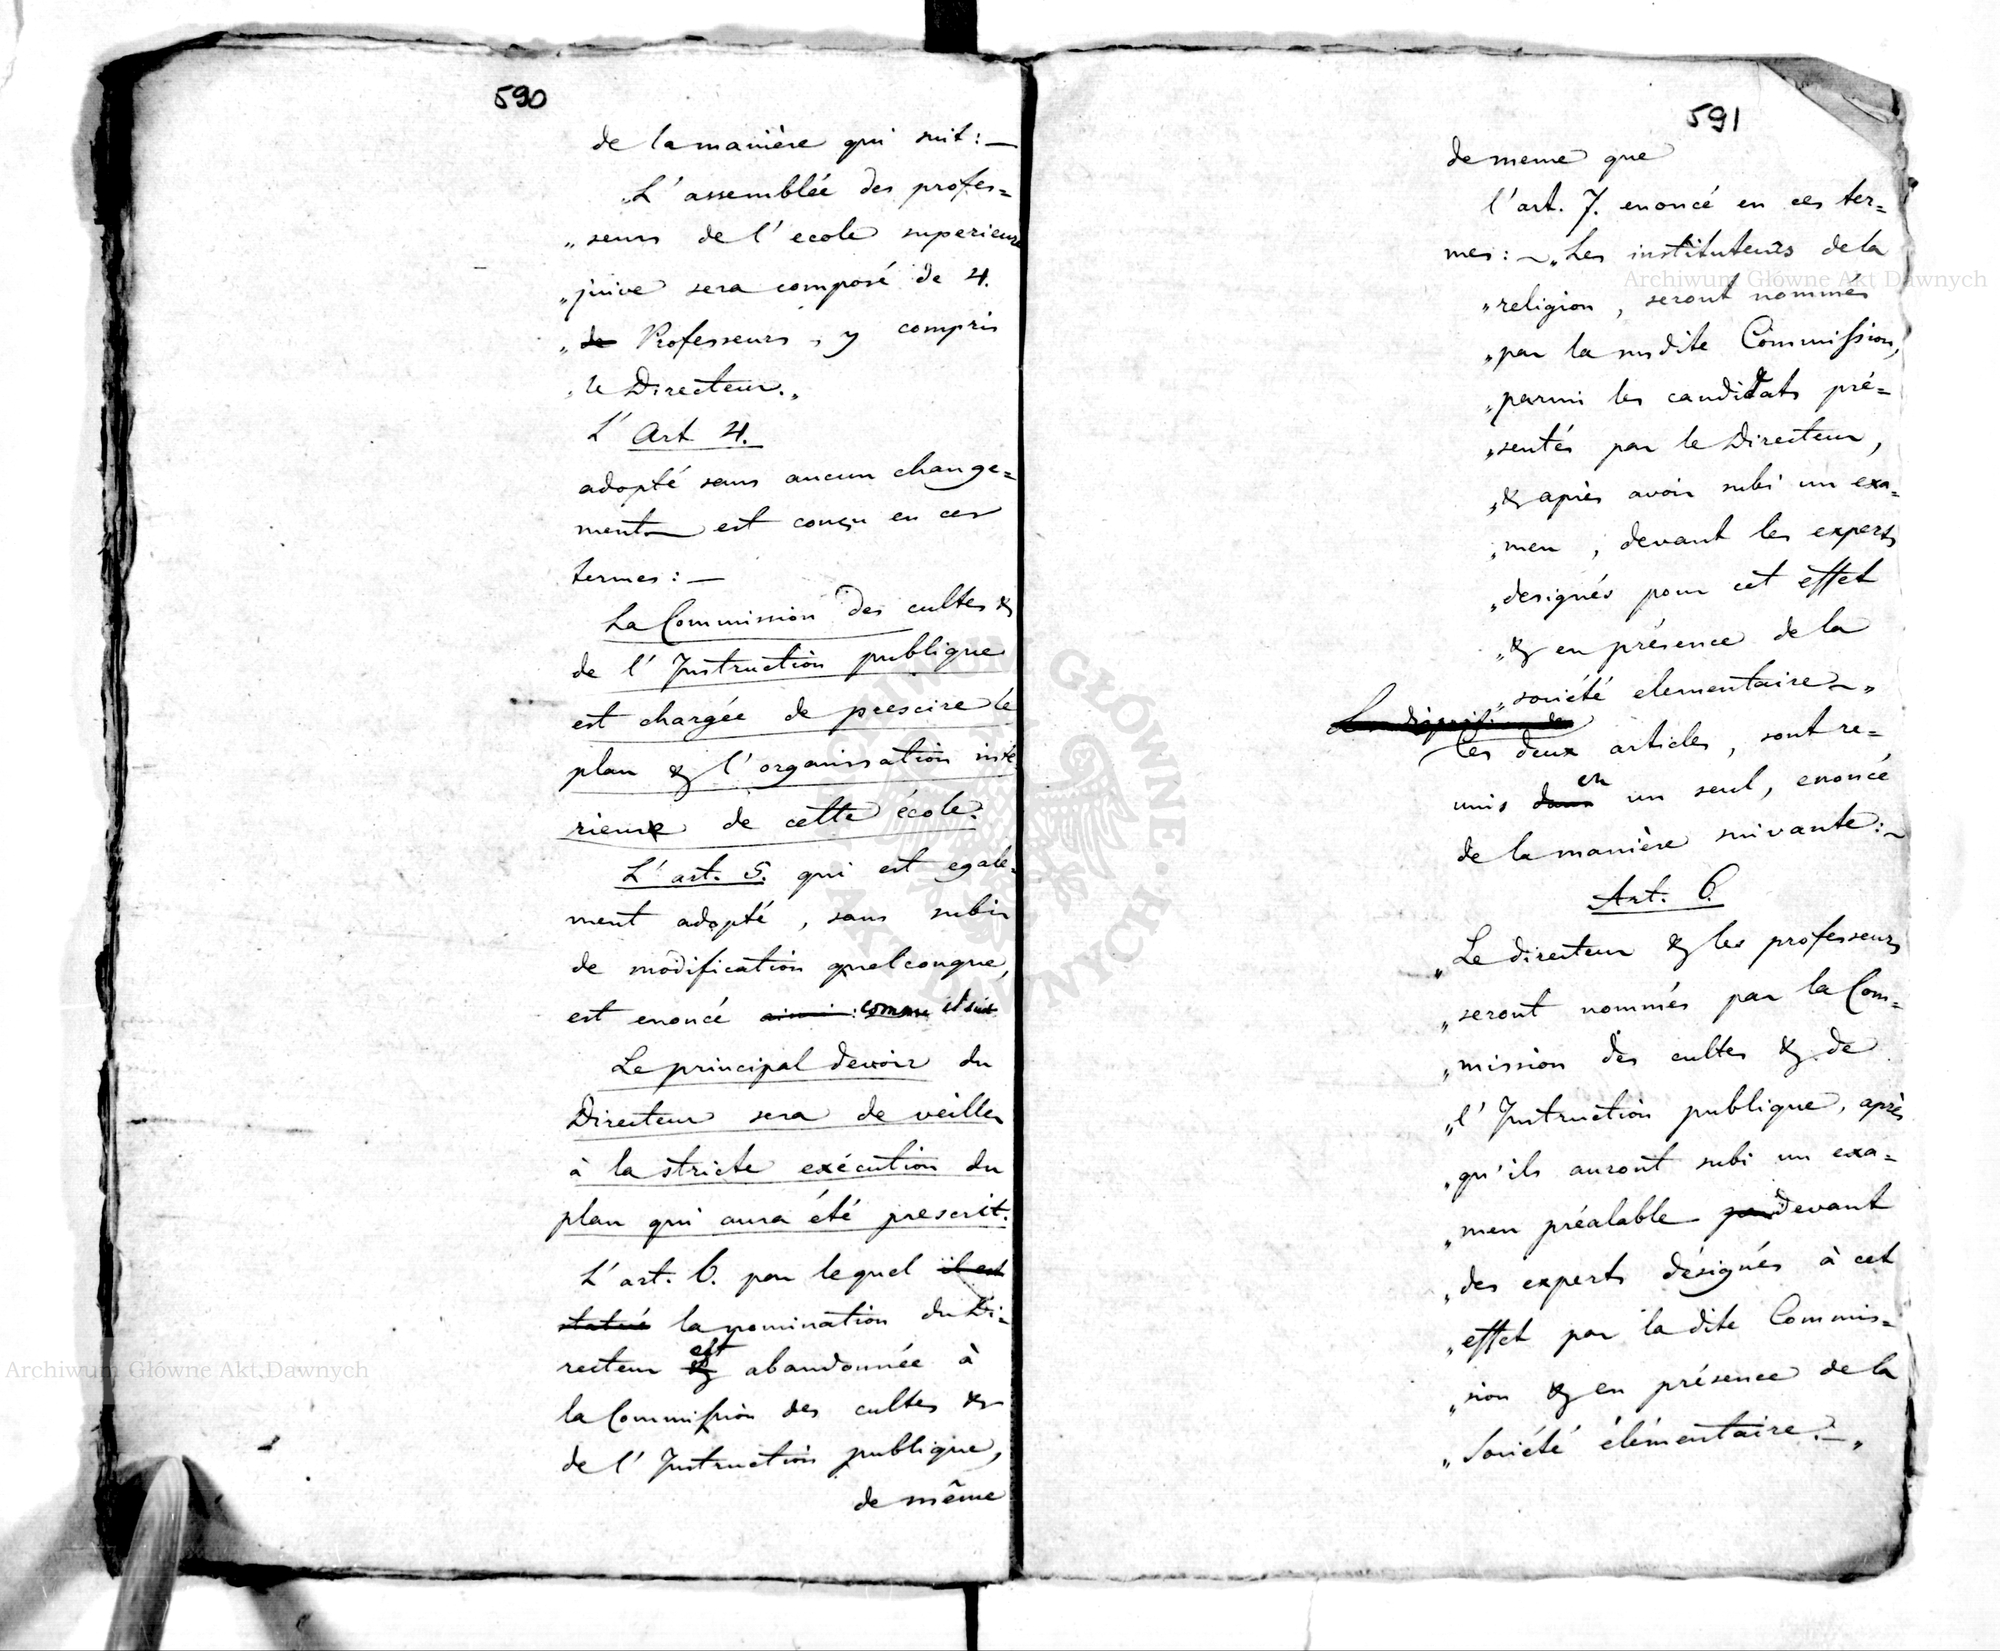 590
de la manière qui suit: —
„L'assemblée des profes=
„seurs de l'ecole superieure
„juive sera composé de 4.
„de Professeurs, y compris
„le Directeur.„
L' Art 4.
adopté sans aucun change=
ment est conçu en ces
termes: —
La Commission des cultes &
de l'Instruction publique
est chargée de prescire le
plan & l'organisation inté
rieure de cette école.
L'art. 5. qui est egale-
ment adopté, sans subir
de modification quelconque,
est enoncé ainsi: comme il suit
Le principal devoir du
Directeur sera de veiller
à la stricte exécution du
plan qui aura été prescrit.
L'art. 6. par lequel il est
statué la nomination du Di-
recteur & est abandonnée à
la Commission des cultes &
de l'Instruction publique,
de même
591
de meme que
l'art. 7. enoncé en ces ter=
mes: — „Les instituteurs de la
„religion, seront nommés
„par la susdite Commission,
„parmi les candidats pré=
„sentés par le Directeur,
„& après avoir subi un exa=
„men, devant les experts
„designés pour cet effet
„& en présence de la
„société elementaire —„
Les de
Ces deux articles, sont re=
unis dans en un seul, enoncé
de la manière suivante: —
Art. 6.
„Le directeur & les professeurs
„seront nommés par la Com=
„mission des cultes & de
„l'Instruction publique, après
„qu'ils auront subi un exa=
„men préalable par devant
„des experts désignés à cet
„effet par la dite Commis=
„sion & en présence de la
„Société élémentaire. —„
Archiwum Główne Akt Dawnych
Archiwum Główne Akt Dawnych
ARCHIWUM GŁÓWNE · AKT DAWNYCH ·